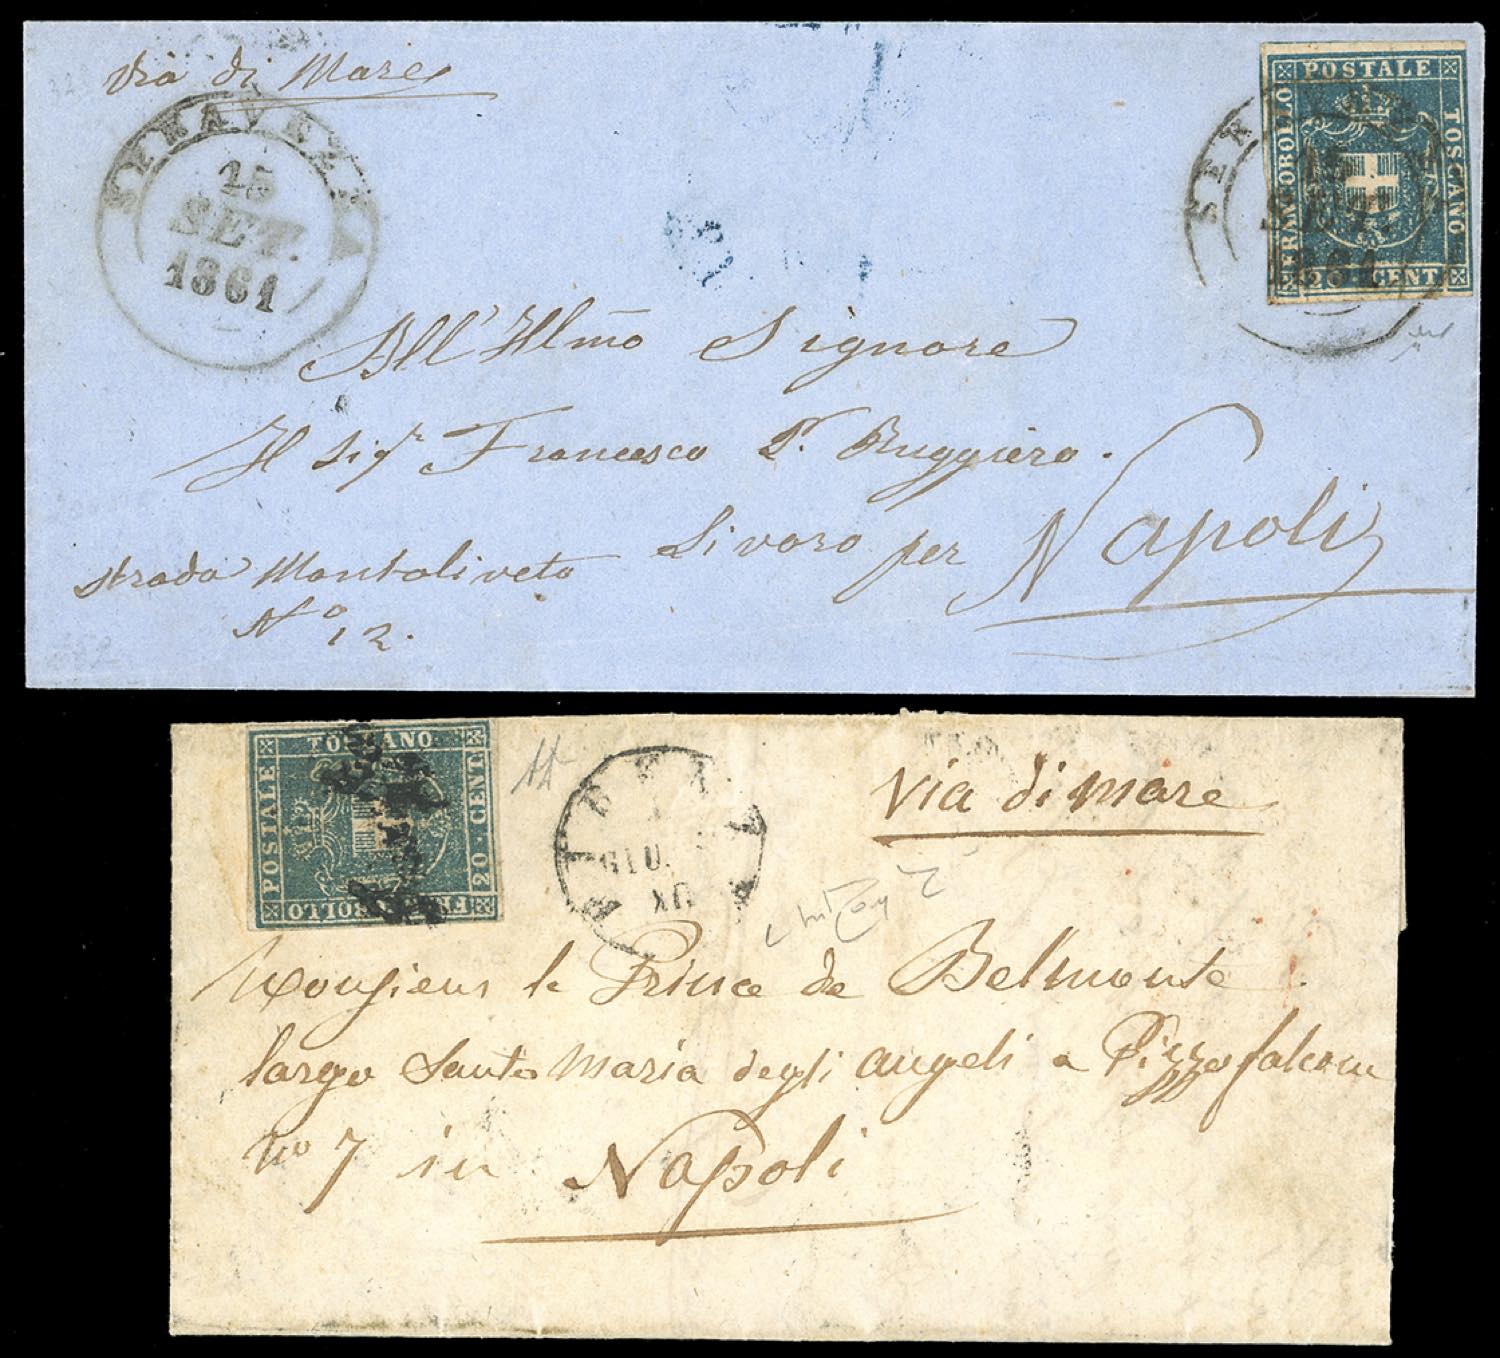 Via di Mare
SERAVEZZA
15
SET.
1861
FRANCOBOLLO POSTALE TOSCANO
20 CENT
SER
15
SET.
1861
All' Illmo Signore
Il Sigr Francesco P. Ruggiero.
Livorno per Napoli
Strada Montoliveto
No 12.
FRANCOBOLLO POSTALE TOSCANO
20 CENT
GIU.
via di mare
Monsieur le Prince de Belmonte.
largo Santa Maria degli angeli a Pizzofalcone
no 7 in Napoli